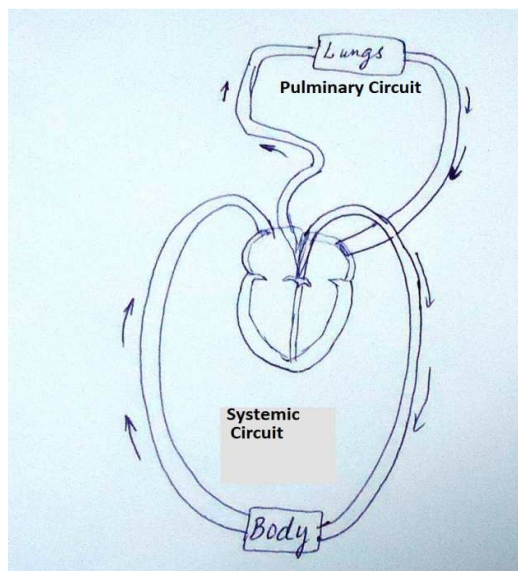 Lungs
Pulminary Circuit
Systemic
Circuit
Body